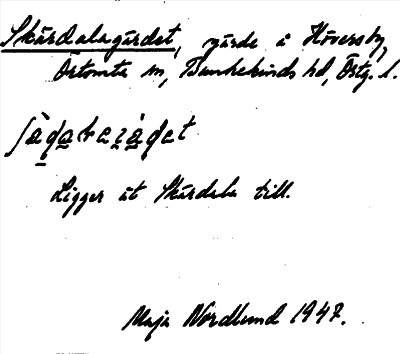 Skårdalagärdet, gärde å Höversby,
Östomta sn, Bankekinds hd, Östg. l.
Ligger åt Skårdala till.
Maja Nordlund 1947.